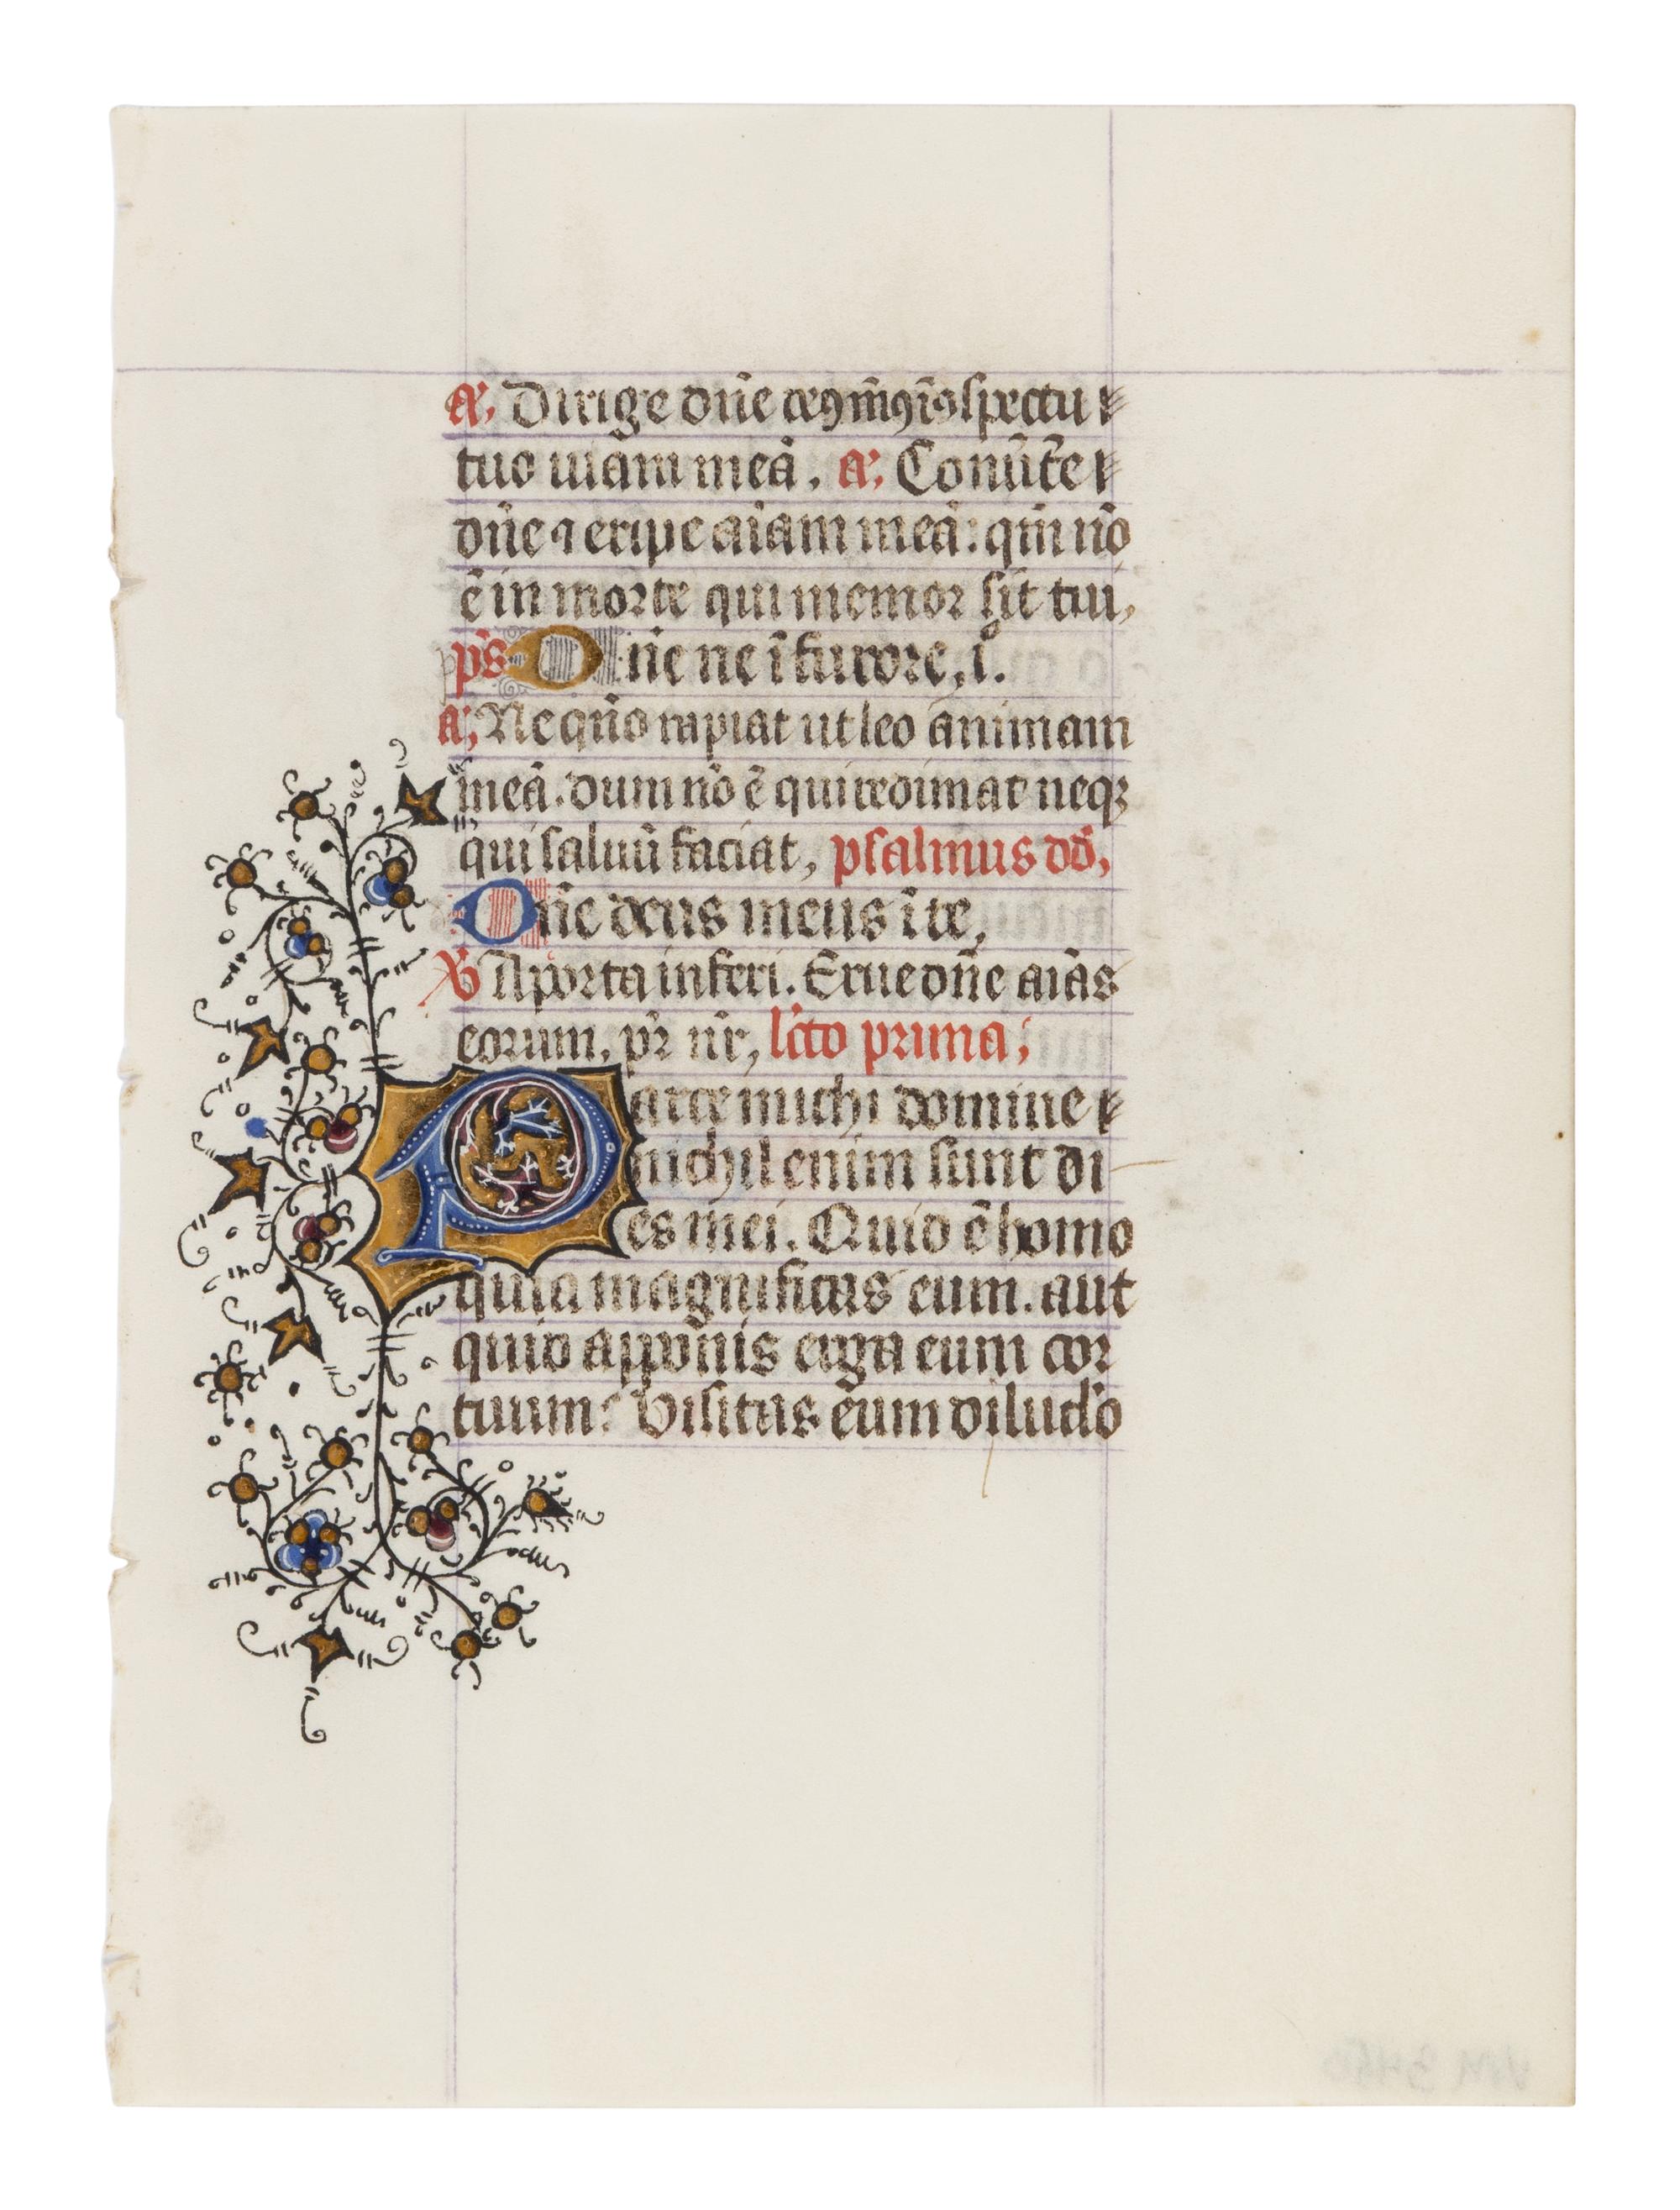 a. Dirige dñe deꝯ mꝯ ĩ ꝯspectu
tuo uiam meã. a. Conũte
dñe ⁊ eripe aĩam meã: qm̃ nõ
ẽ in morte qui memor sit tui,
ps̃ Dñe ne ĩ furore, i.
a. Ne qñо rapiat ut leo animam
meã. dum nõ ẽ qui redimat neqꝫ
qui saluũ faciat, psalmus dd̃,
Dñe deus meus ĩ te,
℣ A porta inferi. Erue dñe aĩas
eorum. pr̃ nr̃, lc̃to prima;
Parce michi domine
nichil enim sunt di
es mei. Quid ẽ homo
quia magnificas eum. aut
quid apponis erga eum cor
tuum? Visitas eum dilucl̃o